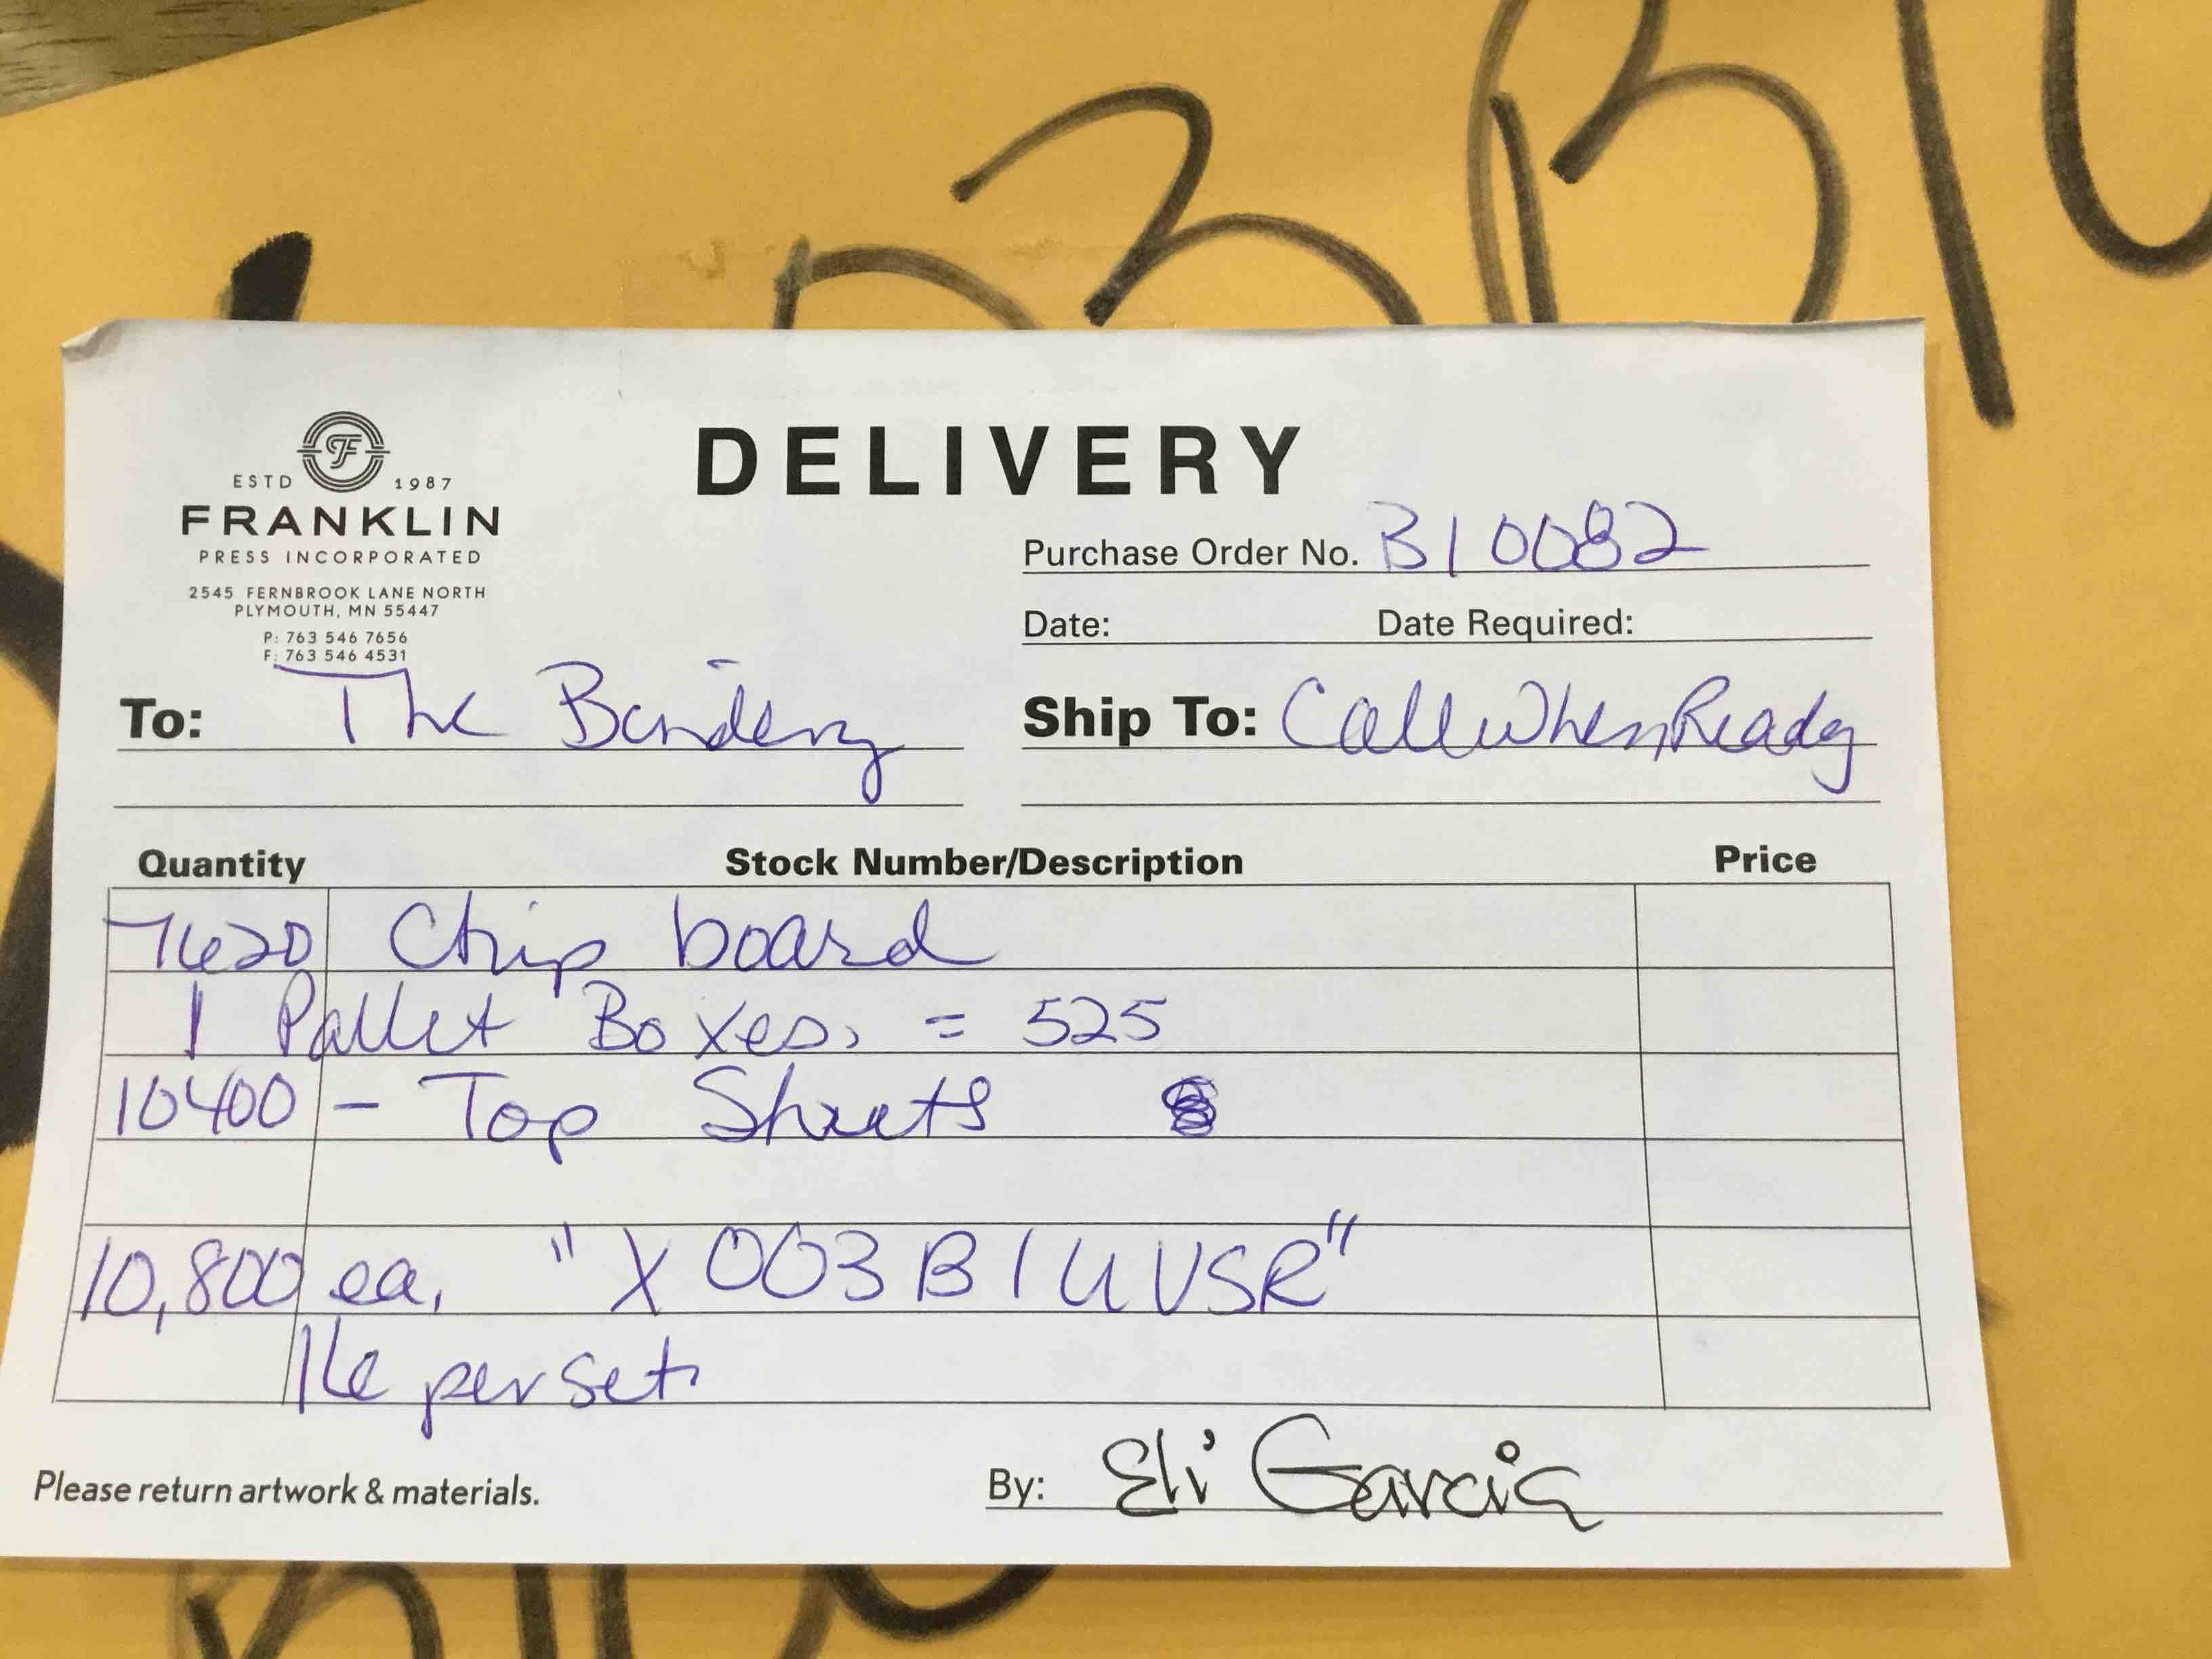 3 B1U
ESTD 1987
FRANKLIN
PRESS INCORPORATED
2545 FERNBROOK LANE NORTH
PLYMOUTH, MN 55447
P: 763 546 7656
F: 763 546 4531
DELIVERY
Purchase Order No. B10082
Date: Date Required:
To: The Bindery
Ship To: Call When Ready
Quantity Stock Number/Description Price
7620 Chip board
1 Pallet Boxes, = 525
10400 - Top Sheets
10,800 ea. "X003B1UVSR"
16 per set
Please return artwork & materials.
By: Eli Garcia